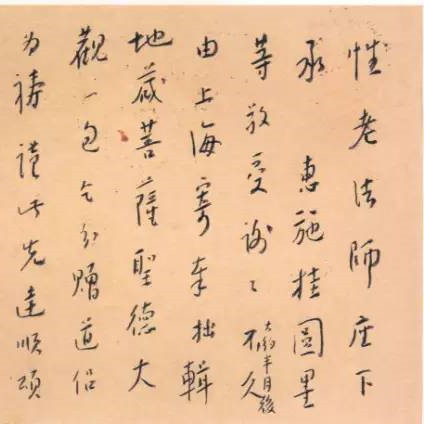 性老法師座下
承 惠施桂圓果
等敬受謝〻不久
大約半月後
由上海寄奉拙輯
地藏菩薩聖德大
觀一包乞分贈道侶
為禱謹此先達順頌